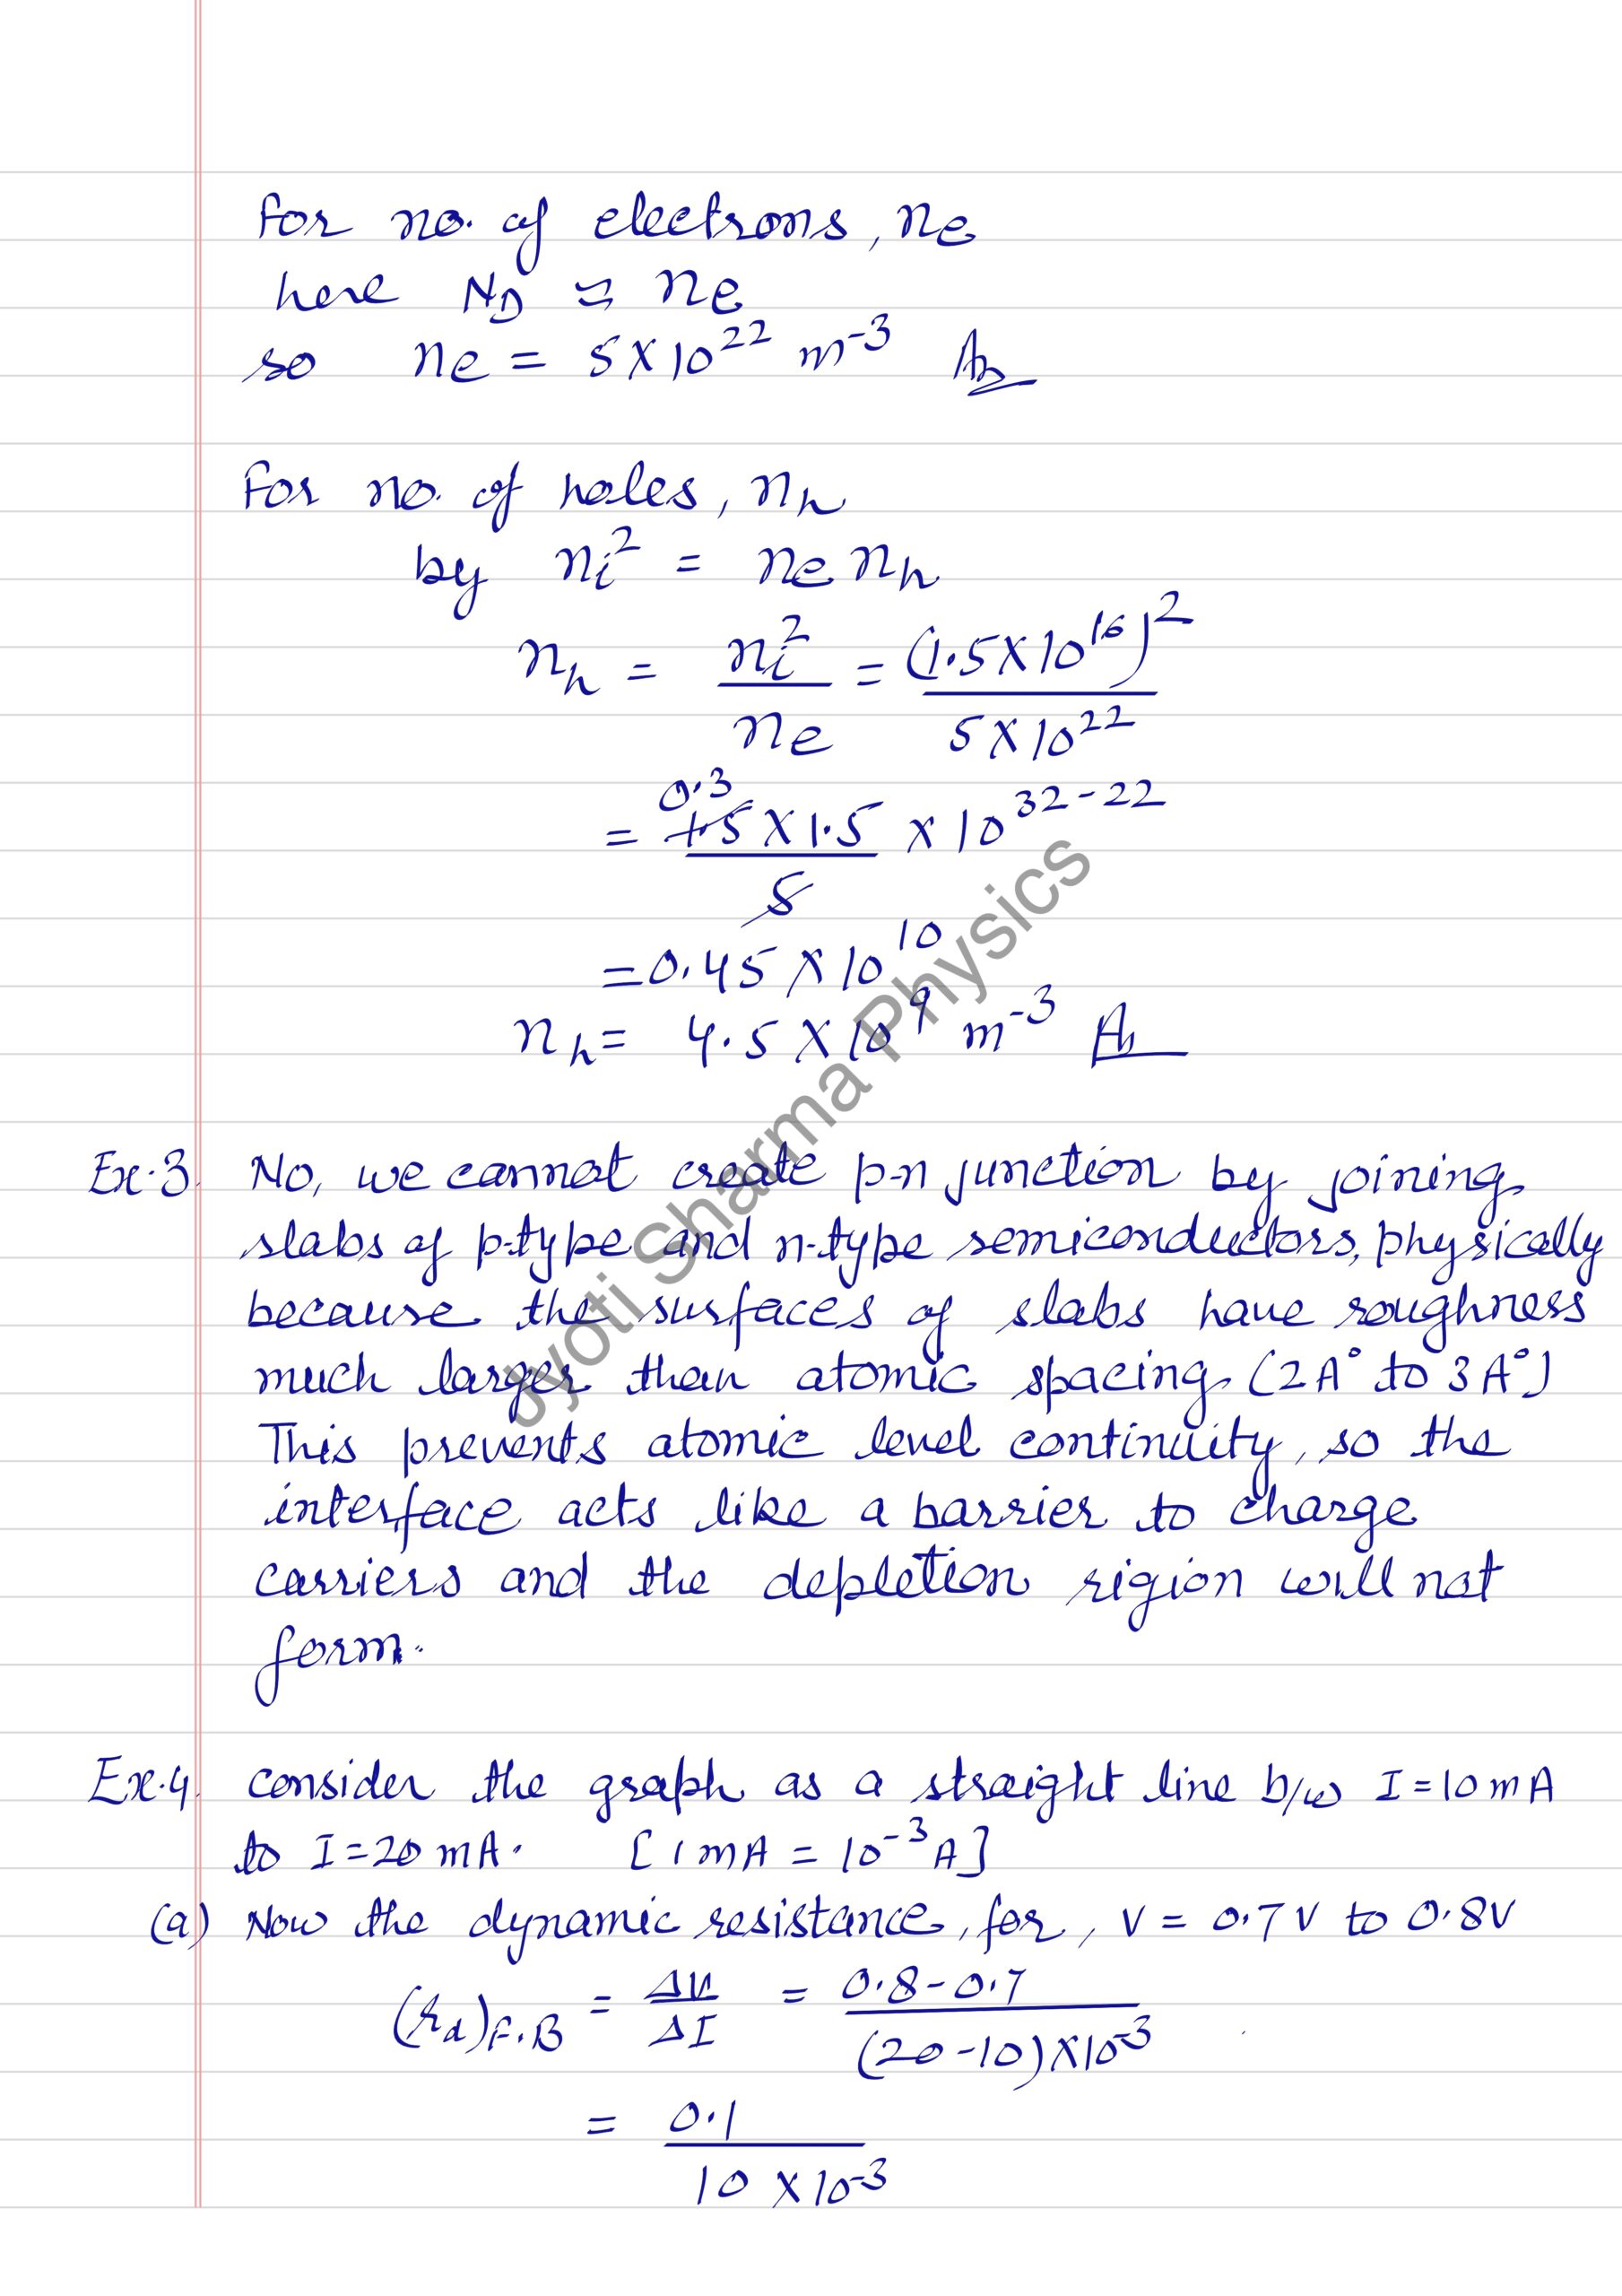 For no. of electrons, ne
here N_D ≈ ne
so ne = 5×10^22 m^-3 Ans
For no. of holes, n_h
by ni^2 = ne n_h
n_h = ni^2/ne = (1.5×10^16)^2/5×10^22
= 0.3 1.5×1.5/5 × 10^32-22
= 0.45×10^10
n_h = 4.5×10^9 m^-3 An
Ex.3. No, we cannot create p-n junction by joining
slabs of p-type and n-type semiconductors, physically
because the surfaces of slabs have roughness
much larger than atomic spacing (2A° to 3A°)
This prevents atomic level continuity, so the
interface acts like a barrier to charge
carriers and the depletion rigion will not
form.
Ex.4. consider the graph as a straight line b/w I=10mA
to I=20mA. [1mA = 10^-3 A]
(a) Now the dynamic resistance, for, V = 0.7V to 0.8V
(r_d)F.B = ΔV/ΔI = 0.8-0.7/(20-10)×10^-3
= 0.1/10×10^-3
Jyoti Sharma Physics